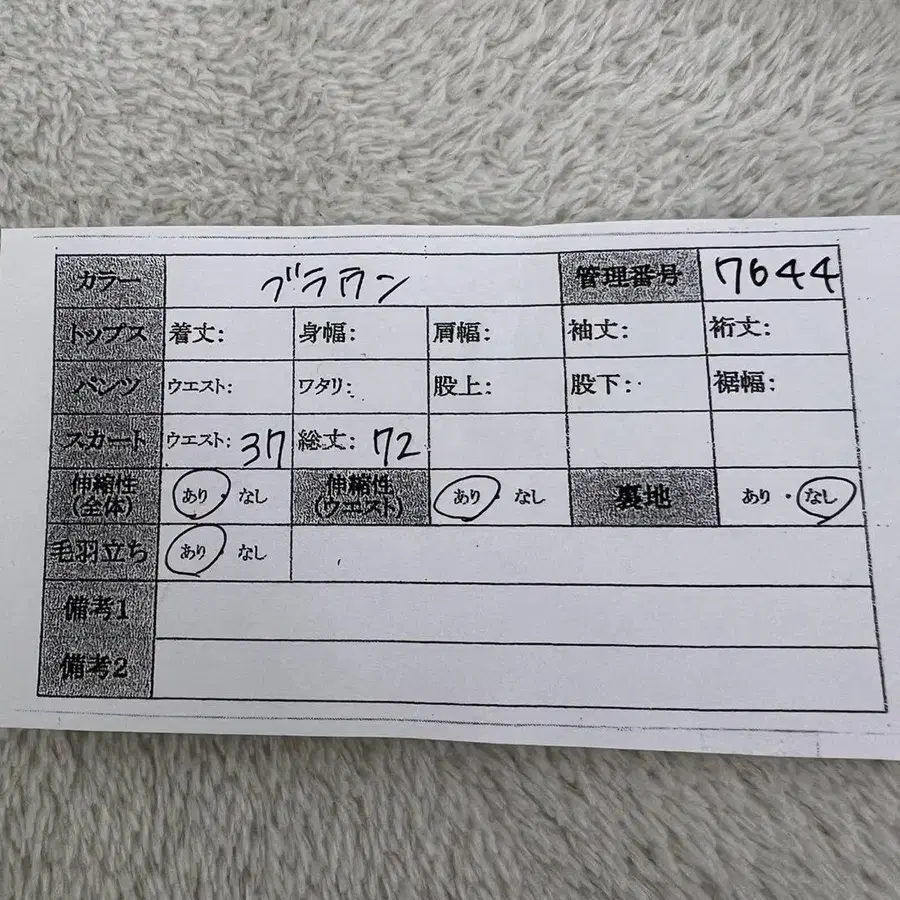 カラー ブラウン 管理番号 7644
トップス 着丈: 身幅: 肩幅: 袖丈: 裄丈:
パンツ ウエスト: ワタリ: 股上: 股下: 裾幅:
スカート ウエスト: 37 総丈: 72
伸縮性(全体) あり・なし 伸縮性(ウエスト) あり・なし 裏地 あり・なし
毛羽立ち あり・なし
備考1
備考2